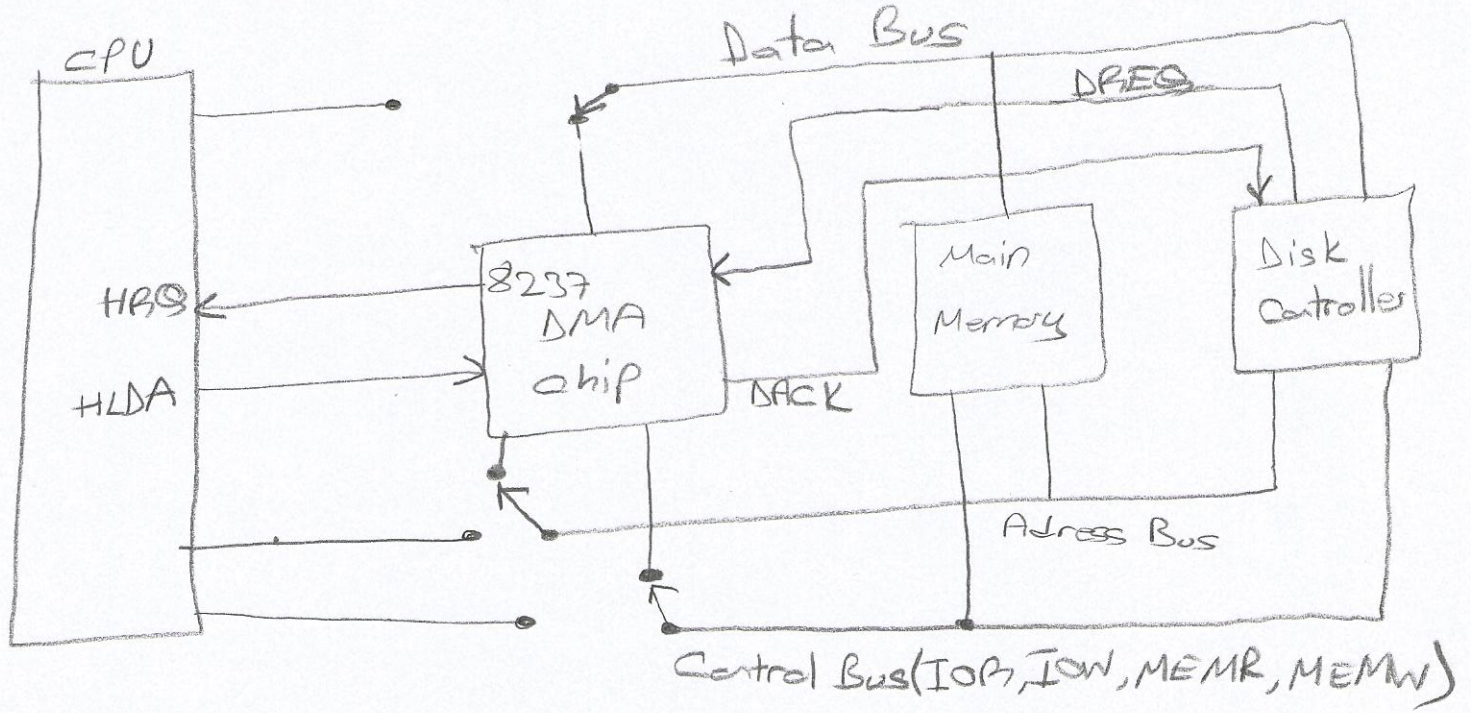 CPU
Data Bus
DREQ
HRQ
HLDA
8237
DMA
chip
DACK
Main
Memory
Disk
Controller
Adress Bus
Control Bus(IOR, IOW, MEMR, MEMW)